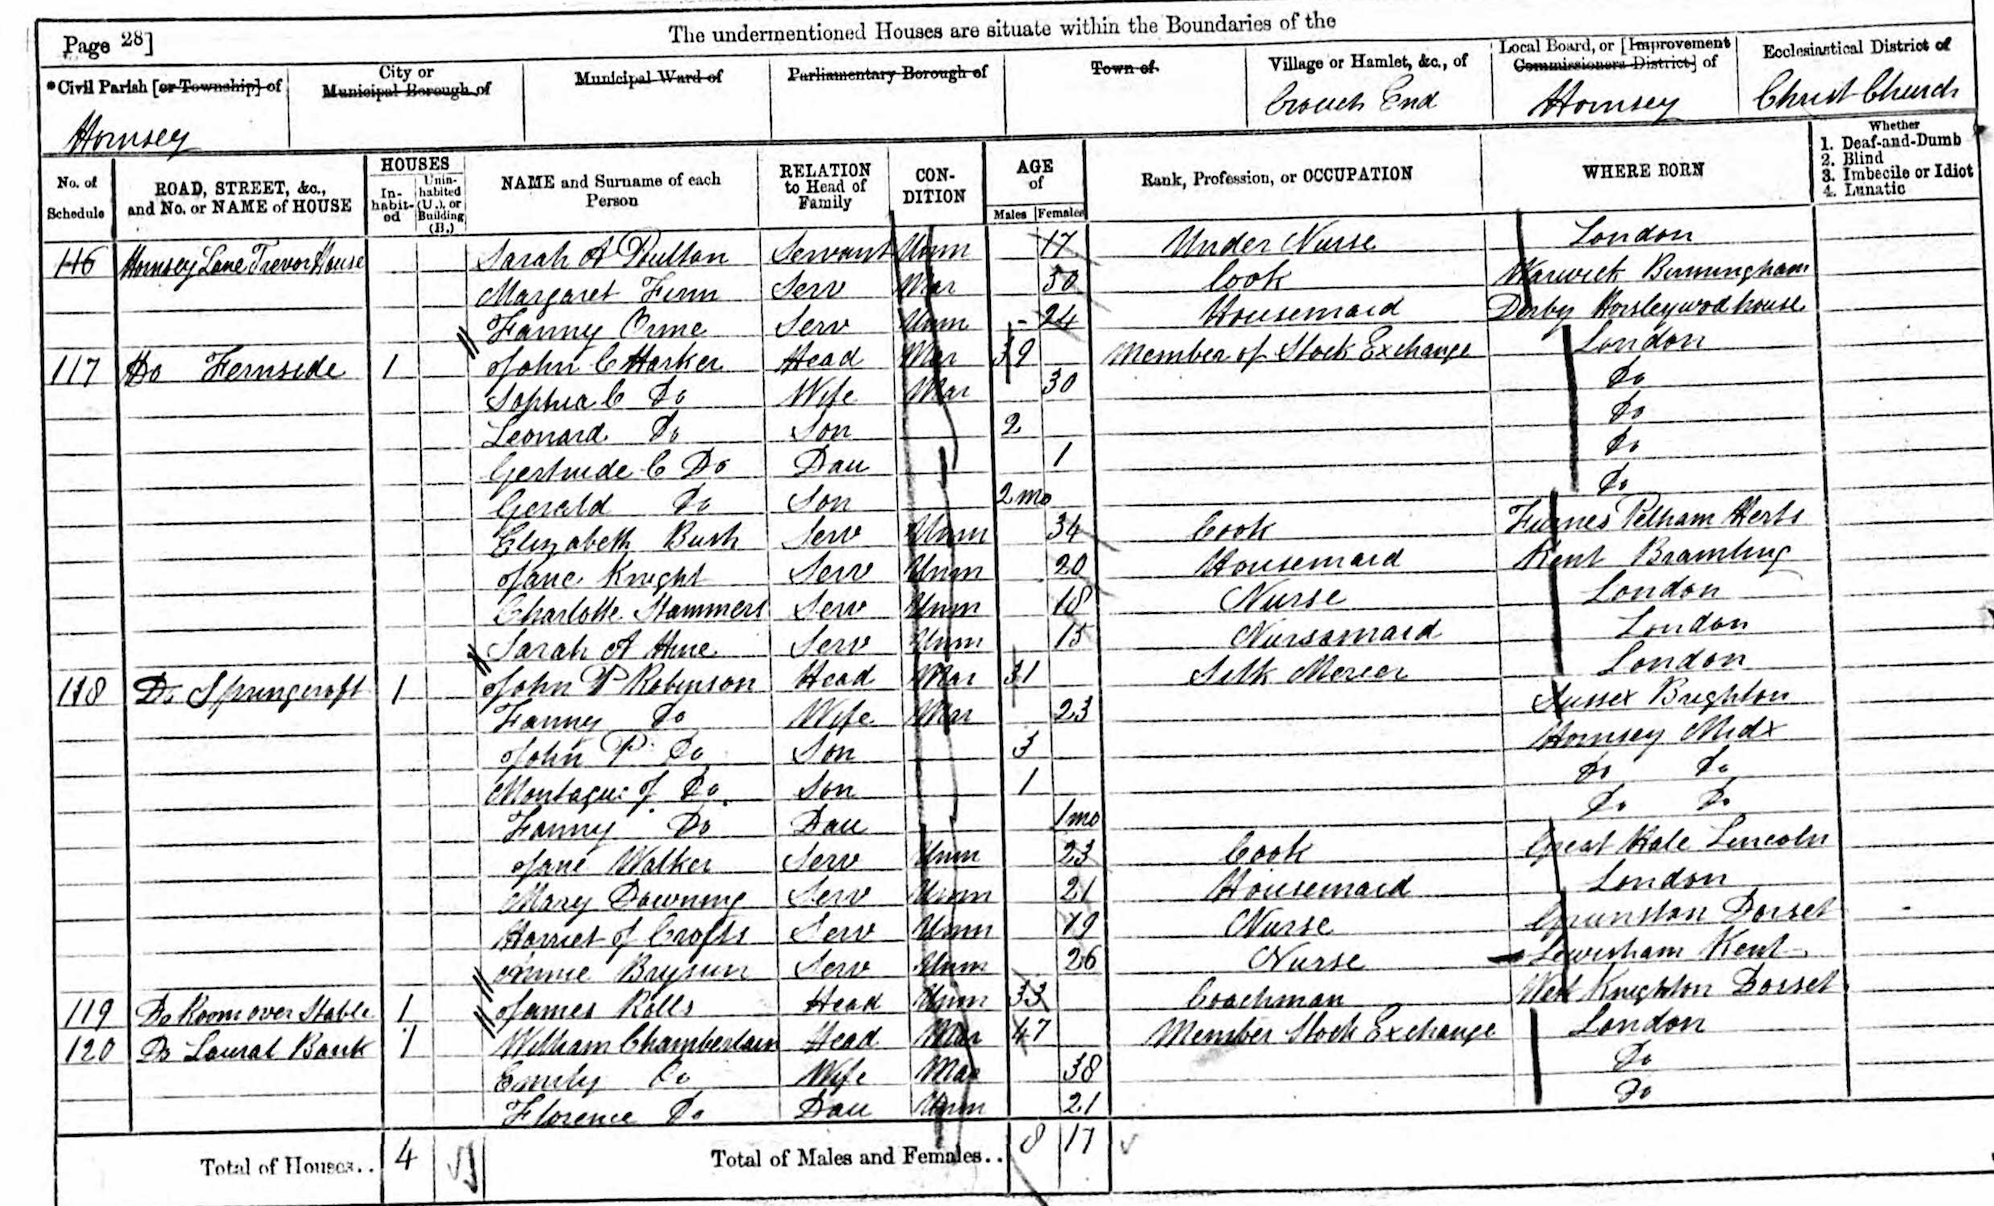 Page 28]
The undermentioned Houses are situate within the Boundaries of the
*Civil Parish [or Township] of
City or Municipal Borough of
Municipal Ward of
Parliamentary Borough of
Town of
Village or Hamlet, &c., of
Local Board, or [Improvement Commissioners District] of
Ecclesiastical District of
Hornsey
Crouch End
Hornsey
Christ Church
No. of Schedule
ROAD, STREET, &c., and No. or NAME of HOUSE
HOUSES
In-habit-ed
Unin-habited (U.), or Building (B.)
NAME and Surname of each Person
RELATION to Head of Family
CON-DITION
AGE of
Males Females
Rank, Profession, or OCCUPATION
WHERE BORN
Whether
1. Deaf-and-Dumb
2. Blind
3. Imbecile or Idiot
4. Lunatic
116 Hornsey Lane Trevor House Sarah A Servant Unm 17 Under Nurse London
Margaret Serv Mar 30 Cook Warwick Birmingham
Fanny Orme Serv Unm 24 Housemaid Derby Horsleywodhouse
117 Do Fernside 1 John C Harker Head Mar 39 Member of Stock Exchange London
Sophia C Do Wife Mar 30 Do
Leonard Do Son 2 Do
Gertrude C Do Dau 1 Do
Gerald Do Son 2 mo Do
Elizabeth Bush Serv Unm 34 Cook Furnes Pelham Herts
Jane Knight Serv Unm 20 Housemaid Kent Bramling
Charlotte Stammers Serv Unm 18 Nurse London
Sarah A Hine Serv Unm 15 Nursemaid London
118 Do Springcroft 1 John P Robinson Head Mar 31 Silk Mercer London
Fanny Do Wife Mar 23 Sussex Brighton
John P Do Son 3 Hornsey Midx
Montague J Do Son 1 Do Do
Fanny Do Dau 1 mo Do Do
Jane Walker Serv Unm 23 Cook Great Hale Lincoln
Mary Downing Serv Unm 21 Housemaid London
Harriet J Crofts Serv Unm 19 Nurse Dorset
Annie Serv Unm 26 Nurse Lewisham Kent
119 Do Room over Stable 1 James Rolls Head Unm 33 Coachman West Knighton Dorset
120 Do Laural Bank 1 William Chamberlain Head Mar 47 Member Stock Exchange London
Emily Do Wife Mar 38 Do
Florence Do Dau Unm 21 Do
Total of Houses.. 4 Total of Males and Females.. 8 17